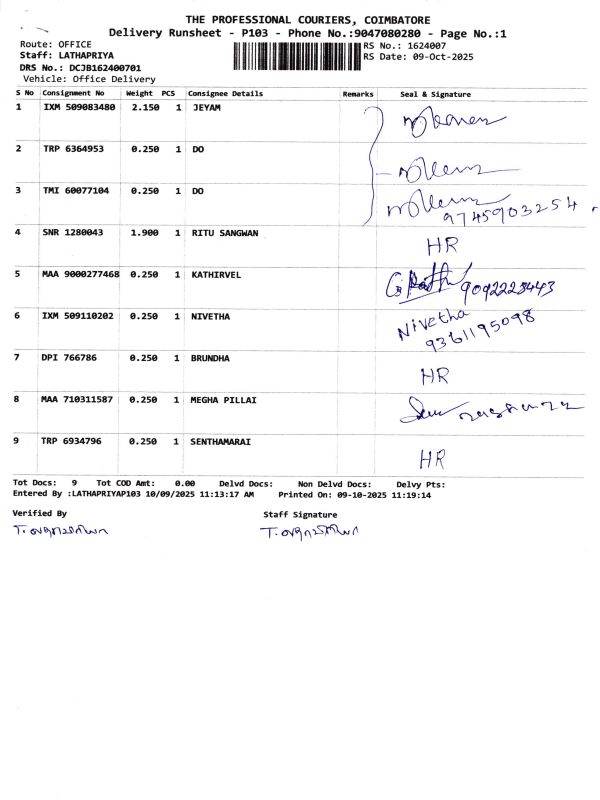 THE PROFESSIONAL COURIERS, COIMBATORE
Delivery Runsheet - P103 - Phone No.:9047080280 - Page No.:1
Route: OFFICE
RS No.: 1624007
Staff: LATHAPRIYA
RS Date: 09-Oct-2025
DRS No.: DCJB162400701
Vehicle: Office Delivery
S No Consignment No Weight PCS Consignee Details Remarks Seal & Signature
1 IXM 509083480 2.150 1 JEYAM
2 TRP 6364953 0.250 1 DO
3 TMI 60077104 0.250 1 DO
9745903254
4 SNR 1280043 1.900 1 RITU SANGWAN HR
5 MAA 9000277468 0.250 1 KATHIRVEL 9092228443
6 IXM 509110202 0.250 1 NIVETHA Nivetha
9361195098
7 DPI 766786 0.250 1 BRUNDHA HR
8 MAA 710311587 0.250 1 MEGHA PILLAI
9 TRP 6934796 0.250 1 SENTHAMARAI HR
Tot Docs: 9 Tot COD Amt: 0.00 Delvd Docs: Non Delvd Docs: Delvy Pts:
Entered By :LATHAPRIYAP103 10/09/2025 11:13:17 AM Printed On: 09-10-2025 11:19:14
Verified By Staff Signature